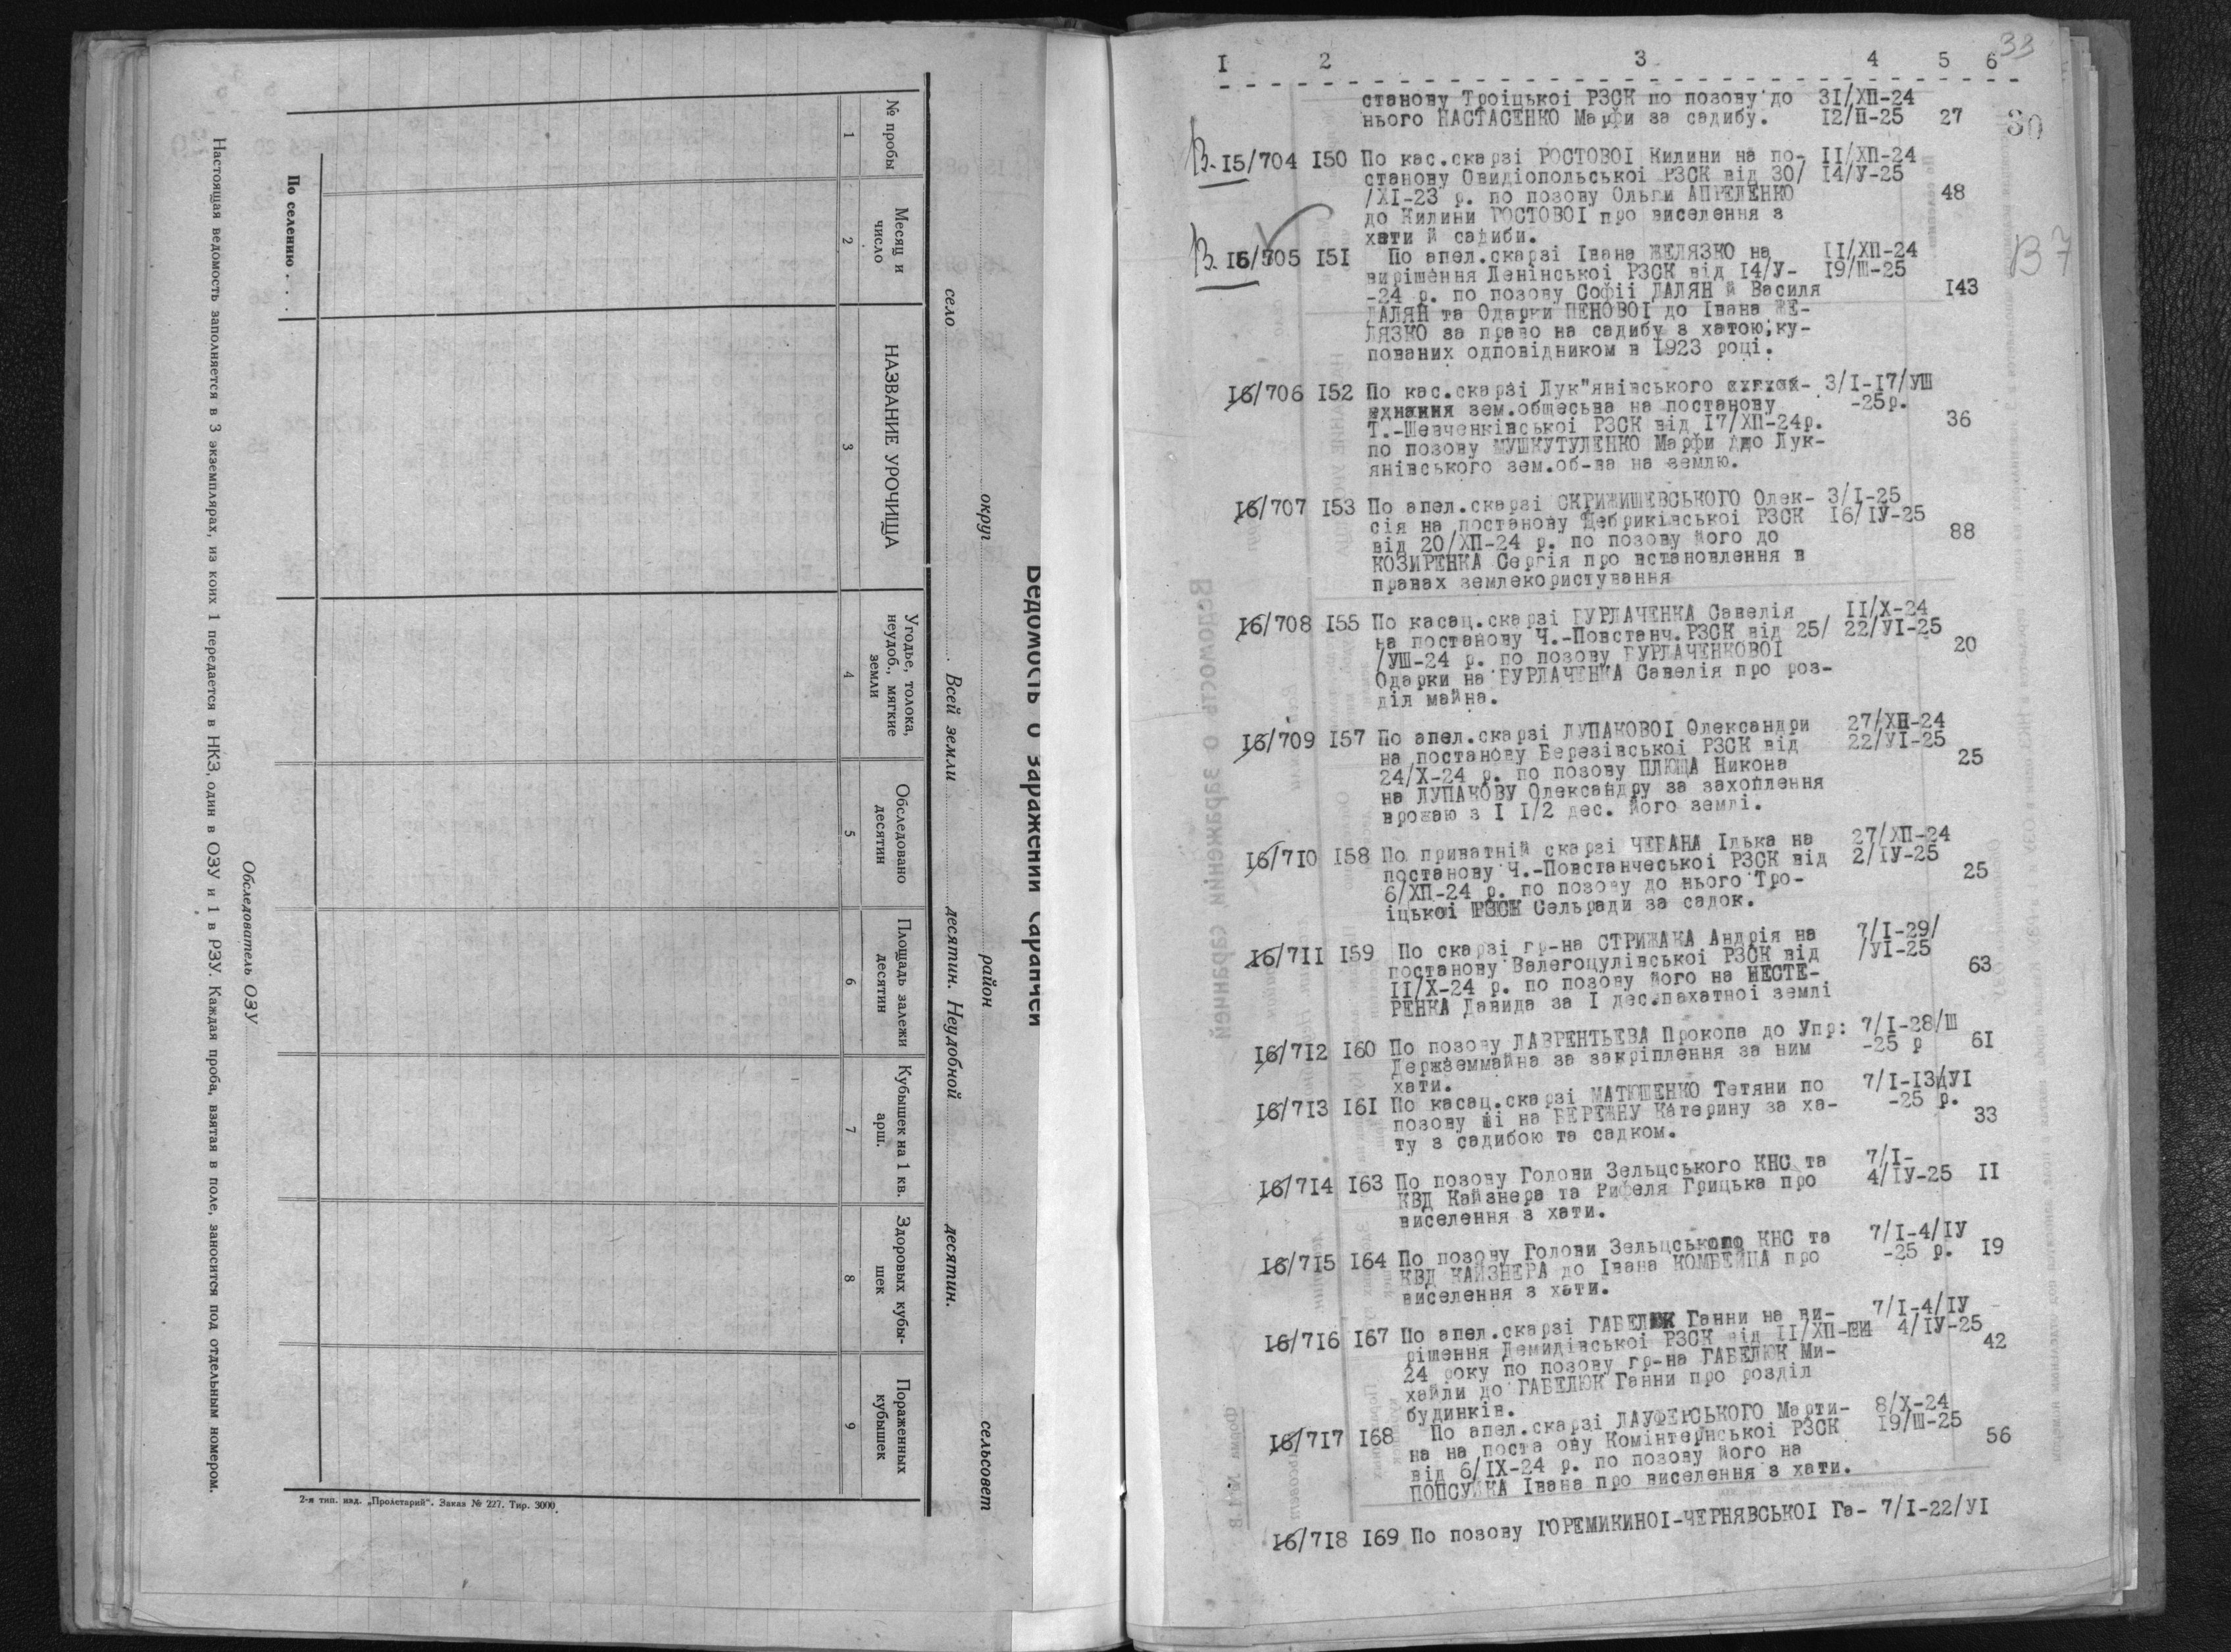 Ведомость о заражении саранчей
округ район сельсовет
село Всей земли десятин. Неудобной десятин.
№ пробы
Месяц и число
НАЗВАНИЕ УРОЧИЩА
Угодье, толока, неудоб., мягкие земли
Обследовано десятин
Площадь залежи десятин
Кубышек на 1 кв. арш.
Здоровых кубышек
Пораженных кубышек
1 2 3 4 5 6 7 8 9
По селению . . .
2-я тип. изд. „Пролетарий". Заказ № 227. Тир. 3000
Обследователь ОЗУ
Настоящая ведомость заполняется в 3 экземплярах, из коих 1 передается в НКЗ, один в ОЗУ и 1 в РЗУ. Каждая проба, взятая в поле, заносится под отдельным номером.
33
I 2 3 4 5 6
30
станову Троіцькоі РЗСК по позову до 3I/ХП-24
нього НАСТАСЕНКО Марфи за садибу. I2/П-25 27
В. I5/704 I50 По кас.скарзі РОСТОВОІ Килини на по- II/ХП-24
станову Овидіопольськоі РЗСК від 30/ I4/У-25
/ХІ-23 р. по позову Ольги АПРЕЛЕНКО 48
до Килини РОСТОВОІ про виселення з
хати й садиби.
В 7
В. I6/705 I5I По апел.скарзі Івана ЖЕЛЯЗКО на II/ХП-24
вирішення Ленінськоі РЗСК від I4/У- I9/Ш-25
-24 р. по позову Софіі ДАЛЯН й Василя I43
ДАЛЯН та Одарки ПЕНОВОІ до Івана ЖЕ-
ЛЯЗКО за право на садибу з хатою,ку-
пованих одповідником в I923 році.
I6/706 I52 По кас.скарзі Лук"янівського 3/I-I7/УШ
зем.общесьва на постанову -25р.
Т.-Шевченківськоі РЗСК від I7/ХП-24р. 36
по позову МУШКУТУЛЕНКО Марфи ддо Лук-
янівського зем.об-ва на землю.
I6/707 I53 По апел.скарзі СКРИЖИШЕВСЬКОГО Олек- 3/I-25
сія на постанову Цебриківськоі РЗСК I6/ІУ-25
від 20/ХП-24 р. по позову його до 88
КОЗИРЕНКА Сергія про встановлення в
правах землекористування
I6/708 I55 По касац.скарзі БУРЛАЧЕНКА Савелія II/Х-24
на постанову Ч.-Повстанч.РЗСК від 25/ 22/УІ-25
/УШ-24 р. по позову БУРЛАЧЕНКОВОІ 20
Одарки на БУРЛАЧЕНКА Савелія про роз-
діл майна.
I6/709 I57 По апел.скарзі ЛУПАКОВОІ Олександри 27/ХП-24
на постанову Березівськоі РЗСК від 22/УІ-25
24/Х-24 р. по позову ПЛЮЩА Никона 25
на ЛУПАКОВУ Олександру за захоплення
врожаю з I I/2 дес. його землі.
I6/7I0 I58 По приватній скарзі ЧЕБАНА Ілька на 27/ХП-24
постанову Ч.-Повстанчеськоі РЗСК від 2/ІУ-25
6/ХП-24 р. по позову до нього Тро- 25
іцькоі РЗСК Сельради за садок.
I6/7II I59 По скарзі гр-на СТРИЖАКА Андрія на 7/I-29/
постанову Валегоцулівськоі РЗСК від /УІ-25
II/Х-24 р. по позову його на НЕСТЕ- 63
РЕНКА Давида за I дес.пахатноі землі
I6/7I2 I60 По позову ЛАВРЕНТЬЕВА Прокопа до Упр: 7/I-28/Ш
Держземмайна за закріплення за ним -25 р 6I
хати.
I6/7I3 I6I По касац.скарзі МАТЮШЕНКО Тетяни по 7/I-I3/УІ
позову ії на БЕРЕЖНУ Катерину за ха- -25 р.
ту з садибою та садком. 33
I6/7I4 I63 По позову Голови Зельцського КНС та 7/I-
КВД Кайзнера та Рифеля Грицька про 4/ІУ-25 II
виселення з хати.
I6/7I5 I64 По позову Голови Зельцського КНС та 7/I-4/ІУ
КВД КАЙЗНЕРА до Івана КОМБЕЙЦА про -25 р. I9
виселення з хати.
I6/7I6 I67 По апел.скарзі ГАБЕЛЮК Ганни на ви- 7/I-4/ІУ
рішення Демидівськоі РЗСК від II/ХП- 4/ІУ-25
24 року по позову гр-на ГАБЕЛЮК Ми- 42
хайли до ГАБЕЛЮК Ганни про розділ
будинків.
I6/7I7 I68 По апел.скарзі ЛАУФЕРСЬКОГО Марти- 8/Х-24
на на поста ову Комінтернськоі РЗСК I9/Ш-25
від 6/ІХ-24 р. по позову його на 56
ПОПСУЙКА Івана про виселення з хати.
I6/7I8 I69 По позову ГОРЕМИКИНОІ-ЧЕРНЯВСЬКОІ Га- 7/I-22/УІ